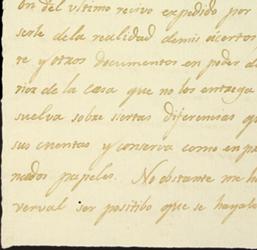 on del vltimo recivo expedido por
serle de la realidad demis aciertos
te y otros documentos en poder de
rior de la Casa que no los entrega
suelva sobre siertas diferencias qu
sus cuentas y conserva como en pa
nados papeles. No obstante me ha
verval ser positibo que se hayab